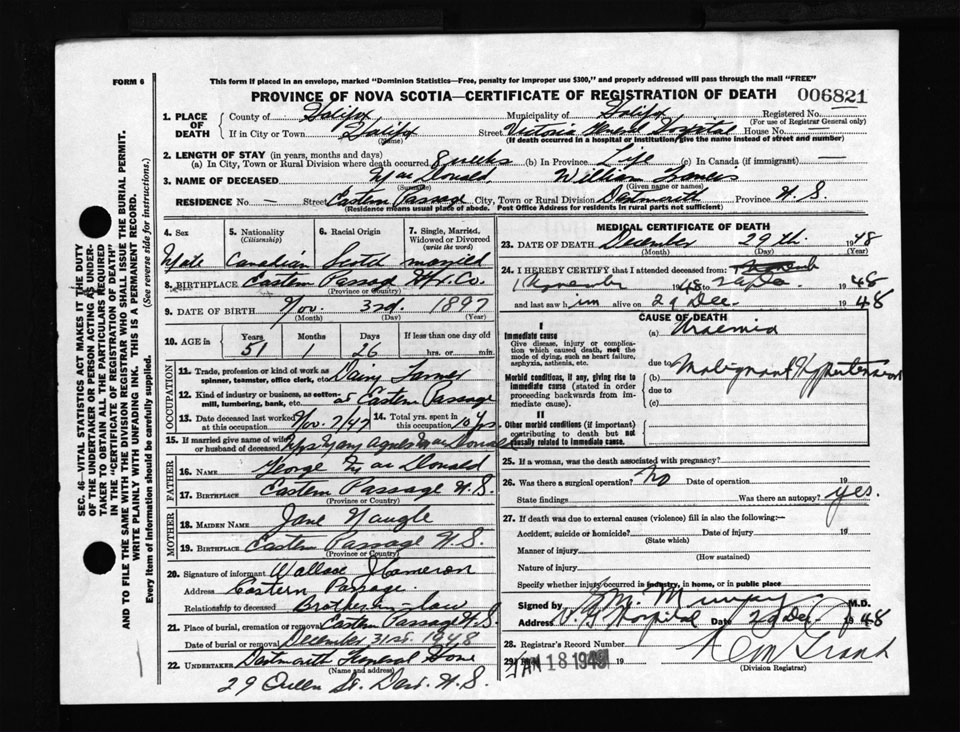 FORM 6
This form if placed in an envelope, marked "Dominion Statistics—Free, penalty for improper use $300," and properly addressed will pass through the mail "FREE"
PROVINCE OF NOVA SCOTIA—CERTIFICATE OF REGISTRATION OF DEATH 006821
1. PLACE OF DEATH
County of Halifax Municipality of Halifax Registered No. —
(For use of Registrar General only)
If in City or Town Halifax Street Victoria General Hospital House No. —
(Name) (If death occurred in a hospital or institution, give the name instead of street and number)
2. LENGTH OF STAY (in years, months and days)
(a) In City, Town or Rural Division where death occurred 8 weeks (b) In Province Life (c) In Canada (if immigrant) —
3. NAME OF DECEASED MacDonald, William Francis
(Surname) (Given name or names)
RESIDENCE No. — Street Eastern Passage City, Town or Rural Division Dartmouth Province N.S.
(Residence means usual place of abode. Post Office Address for residents in rural parts not sufficient)
4. Sex 5. Nationality (Citizenship) 6. Racial Origin 7. Single, Married, Widowed or Divorced (write the word)
Male Canadian Scotch married
8. BIRTHPLACE Eastern Passage Hfx. Co.
(Province or Country)
9. DATE OF BIRTH Nov. 3rd. 1897
(Month) (Day) (Year)
10. AGE in Years Months Days If less than one day old
51 1 26 hrs. or min.
OCCUPATION
11. Trade, profession or kind of work as spinner, teamster, office clerk, etc. Dairy Farmer
12. Kind of industry or business, as cotton-mill, lumbering, bank, etc. at Eastern Passage
13. Date deceased last worked at this occupation Nov. 7/47 14. Total yrs. spent in this occupation 10 yrs
15. If married give name of wife or husband of deceased Mrs Mary Agnes MacDonald
FATHER
16. NAME George MacDonald
17. BIRTHPLACE Eastern Passage N.S.
(Province or Country)
MOTHER
18. MAIDEN NAME Jane Naugle
19. BIRTHPLACE Eastern Passage N.S.
(Province or Country)
20. Signature of informant Wallace J Cameron
Address Eastern Passage
Relationship to deceased Brother-in-law
21. Place of burial, cremation or removal Eastern Passage N.S.
Date of burial or removal December 31st. 1948
22. UNDERTAKER Dartmouth Funeral Home
(Name and address)
29 Queen St. Dart. N.S.
MEDICAL CERTIFICATE OF DEATH
23. DATE OF DEATH December 29th. 1948
(Month) (Day) (Year)
24. I HEREBY CERTIFY that I attended deceased from:
1 November 1948 to 29 Dec. 1948
and last saw him alive on 29 Dec. 1948
CAUSE OF DEATH
I
Immediate cause
Give disease, injury, or complication which caused death, not the mode of dying, such as heart failure, asphyxia, asthenia, etc.
(a) Uraemia
due to
Morbid conditions, if any, giving rise to immediate cause (stated in order proceeding backwards from immediate cause).
(b) Malignant Hypertension
due to
(c)
II
Other morbid conditions (if important) contributing to death but not causally related to immediate cause.
25. If a woman, was the death associated with pregnancy?
26. Was there a surgical operation? No Date of operation 19
State findings Was there an autopsy? yes.
27. If death was due to external causes (violence) fill in also the following:—
Accident, suicide or homicide? Date of injury 19
(State which)
Manner of injury
(How sustained)
Nature of injury
Specify whether injury occurred in industry, in home, or in public place
Signed by M.D.
Address V. G. Hospital Date 29 Dec. 1948
28. Registrar's Record Number
29. JAN 18 1949 19
(Division Registrar)
SEC. 46—VITAL STATISTICS ACT MAKES IT THE DUTY
OF THE UNDERTAKER OR PERSON ACTING AS UNDER-
TAKER TO OBTAIN ALL THE PARTICULARS REQUIRED
IN THE "CERTIFICATE OF REGISTRATION OF DEATH"
AND TO FILE THE SAME WITH THE DIVISION REGISTRAR WHO SHALL ISSUE THE BURIAL PERMIT.
WRITE PLAINLY WITH UNFADING INK. THIS IS A PERMANENT RECORD.
Every item of information should be carefully supplied. (See reverse side for instructions.)